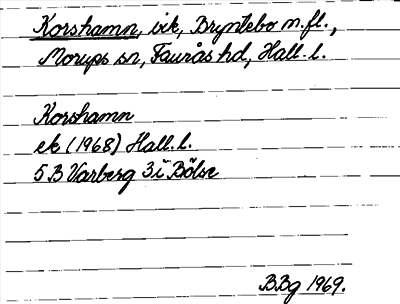 Korshamn, vik, Bryntebo m.fl.,
Morups sn, Faurås hd, Hall. l.
Korshamn
ek (1968) Hall. l.
5 B Varberg 3 i Bölse
B.Bg 1969.